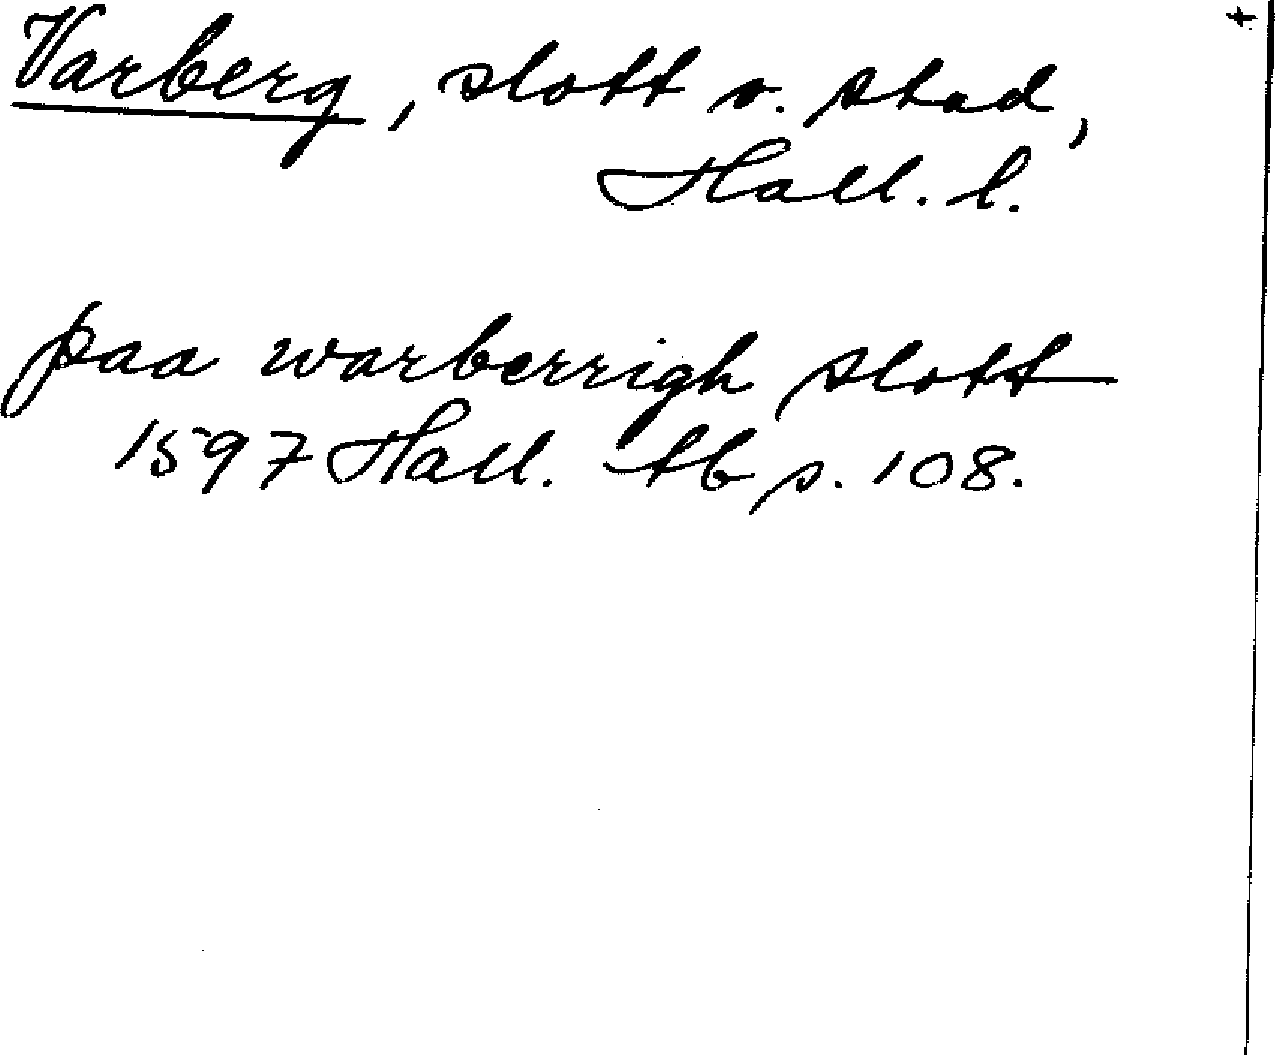 Varberg, slott o. stad,
Hall. l.
paa warberrigh slott
1597 Hall. tb s. 108.